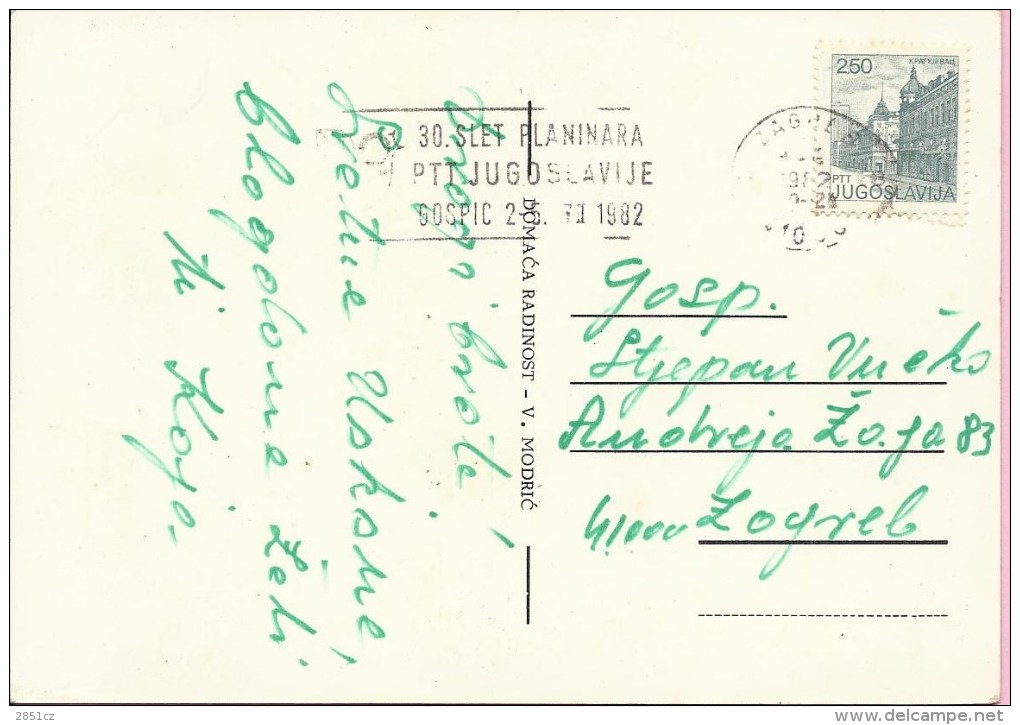 30. SLET PLANINARA
PTT JUGOSLAVIJE
GOSPIC 2-6. VII 1982
2,50
КРАГУЈЕВАЦ
PTT
JUGOSLAVIJA
ZAGREB
Dragi brate!
Sretne Uskrsne
blagdane želi
ti Kaja
DOMAĆA RADINOST - V. MODRIĆ
Gosp.
Stjepan Vučko
Andreja Žaja 83
41000 Zagreb
2851cz
delcampe.net